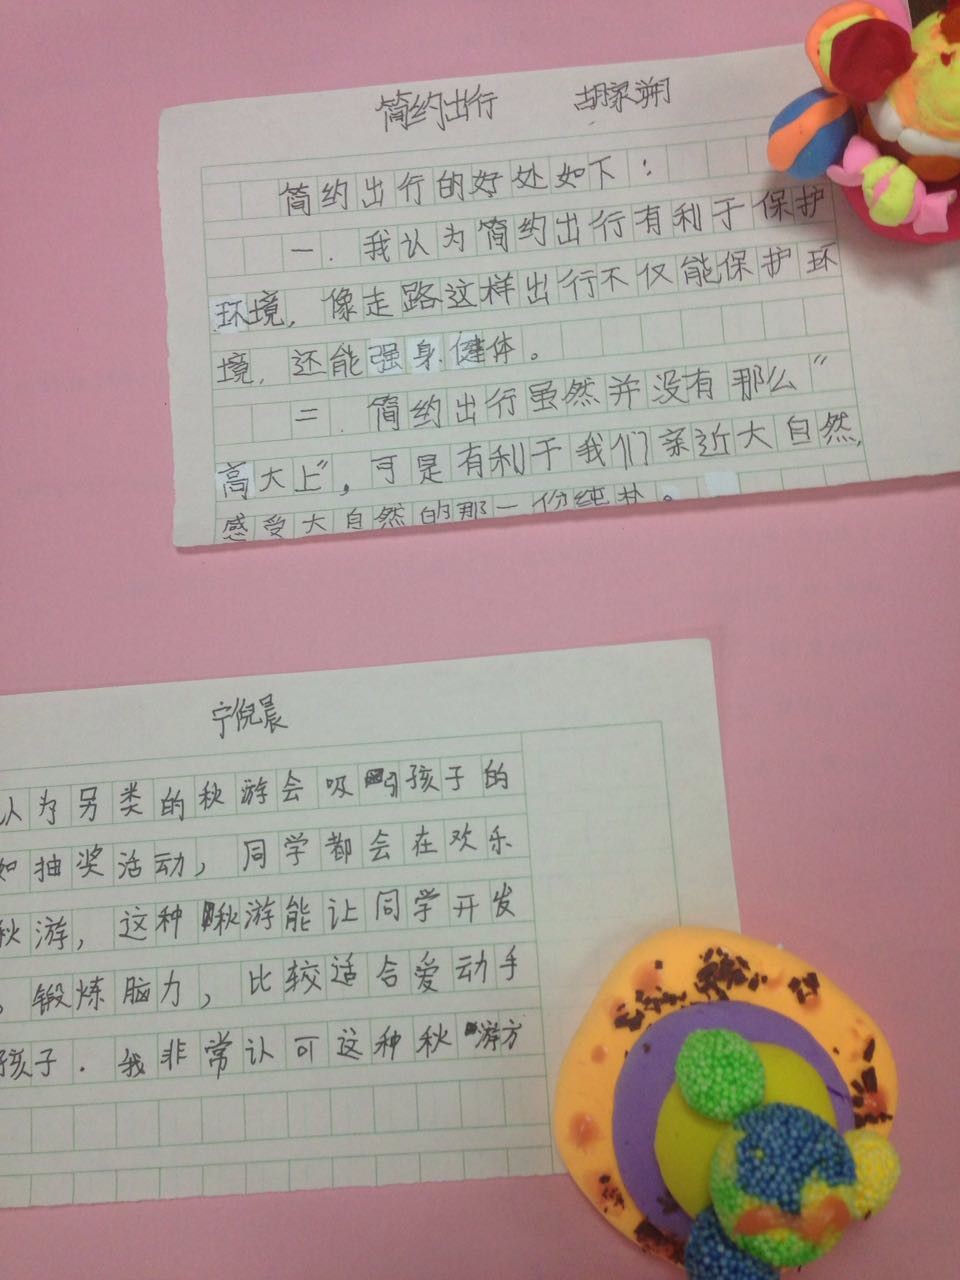 简约出行 胡家朔
简约出行的好处如下：
一．我认为简约出行有利于保护
环境，像走路这样出行不仅能保护环
境，还能强身健体。
二．简约出行虽然并没有那么“
高大上”，可是有利于我们亲近大自然，
感受大自然的那一份纯朴。
宁倪晨
认为另类的秋游会吸引孩子的
如抽奖活动，同学都会在欢乐
秋游，这种秋游能让同学开发
，锻炼脑力，比较适合爱动手
孩子．我非常认可这种秋游方